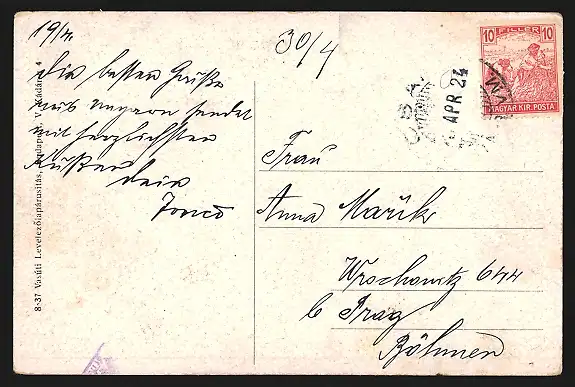 19/4.
die besten Grüße
aus Ungarn sendet
mit herzlichsten
Küssen
dein
30/4
10 FILLÉR 10
MAGYAR KIR. POSTA
APR 24
Frau
Anna Mařík
Wrschowitz 644
b Prag
Böhmen
8-37 Vasúti Levelezőlapárusítás, Budapest, V. Kádár-u. 4